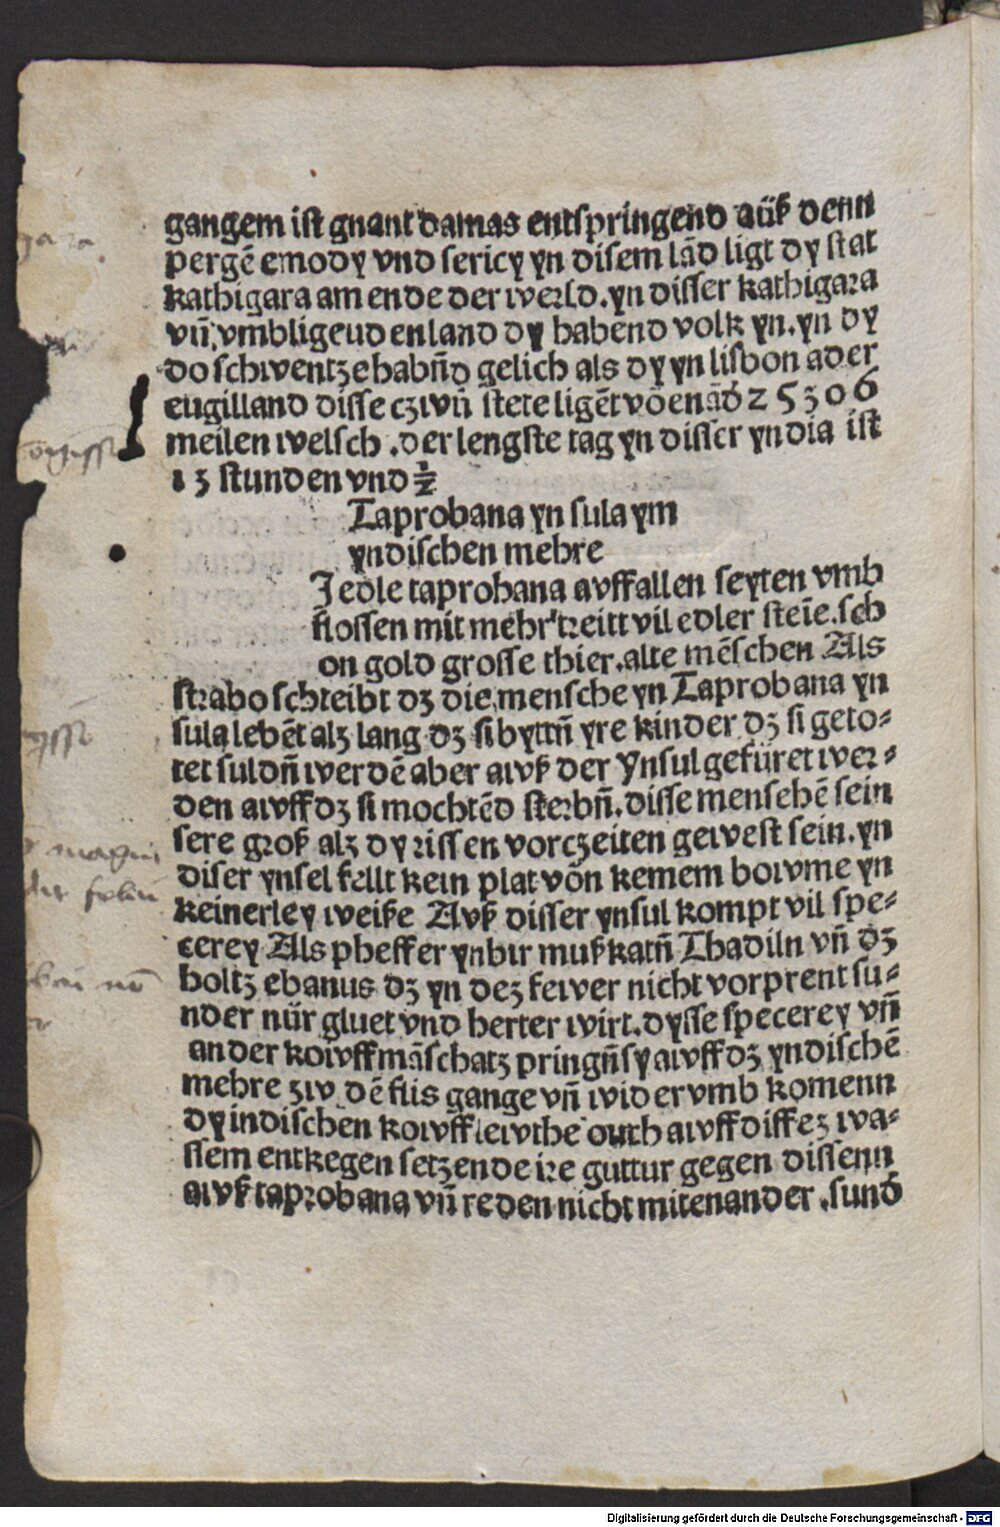 gangem ist gnant damas entspringend aüß denn
pergē emodÿ vnd sericÿ ÿn disem lād ligt dÿ stat
kathigara am ende der werld. ÿn disser kathigara
vn̄. vmbligeud en land dÿ habend volk ÿn. ÿn dÿ
do schwentze habn̄d gelich als dÿ ÿn lisbon ader
eugilland disse czwu̅ stete ligēt vō enād 25306
meilen welsch . der lengste tag ÿn disser ÿndia ist
13 stunden vnd ½
Taprobana ÿn sula ÿm
ÿndischen mehre
Ie edle taprobana avff allen seÿten vmb
flossen mit mehr treitt vil edler steīe. sch
on gold grosse thier. alte mēschen Als
strabo schreibt dz die mensche ÿn Taprobana ÿn
sula lebēt alz lang dz si bÿttn̄ ÿre kinder dz si geto-
tet suldn̄ werdē aber awß der Ynsul gefüret wer-
den awff dz si mochtēd sterbn̄. disse mensehē sein
sere groß alz dÿ rissen vorczeiten gewest sein. ÿn
diser ÿnsel fellt kein plat von kemem bowme ÿn
keinerleÿ weiße Avß disser ÿnsul kompt vil spe-
cereÿ Als pheffer ÿnbir mußkatn̄ Thadiln vn̄ dz
holtz ebanus dz ÿn dez fewer nicht vorprent su-
nder nür gluet vnd herter wirt. dÿsse specereÿ vn̄
ander kowffmāschatz pringn̄ sÿ awff dz ÿndischē
mehre zw dē flis gange vn̄ widervmb komenn
dÿ indischen kowfflewthe ouch awff diffez wa-
ssem entkegen setzende ire guttur gegen dissenn
awß taprobana vn̄ reden nicht mitenander . sund
Digitalisierung gefördert durch die Deutsche Forschungsgemeinschaft - DFG